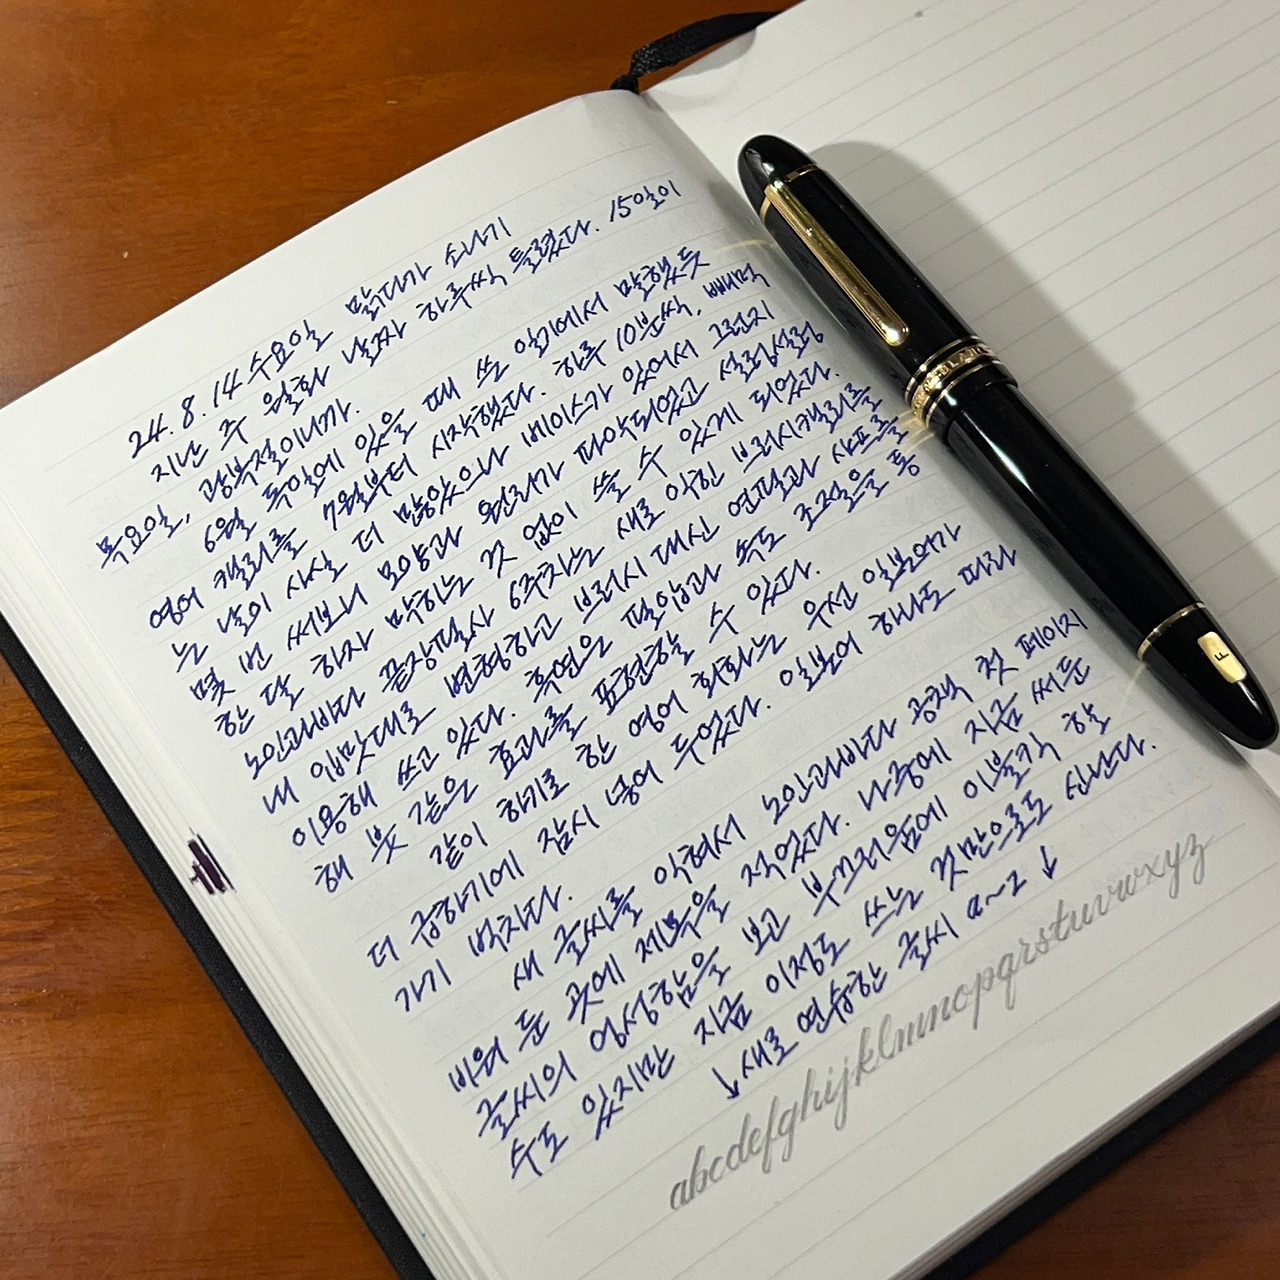 24.8.14 수요일 맑다가 소나기
지난 주 월화 날짜 하루씩 틀렸다. 15일이
목요일, 광복절이니까.
6월 독일에 있을 때 쓴 일기에서 말했듯
영어 캘리를 7월부터 시작했다. 하루 10분씩. 빼먹
는 날이 사실 더 많았으나 베이스가 있어서 그런지
몇 번 써보니 모양과 원리가 파악되었고 설렁설렁
한 달 하자 막히는 것 없이 쓸 수 있게 되었다.
노인과바다 끝장필사 6주차는 새로 익힌 브러시캘리를
내 입맛대로 변형하고 브러시 대신 연필과 샤프를
이용해 쓰고 있다. 흑연은 필압과 속도 조절을 통
해 붓 같은 효과를 표현할 수 있다.
같이 하기로 한 영어 회화는 우선 일본어가
더 급하기에 잠시 넣어 두었다. 일본어 하나도 따라
가기 벅차다.
새 글씨를 익혀서 노인과바다 공책 첫 페이지
비워 둔 곳에 제목을 적었다. 나중에 지금 써둔
글씨의 엉성함을 보고 부끄러움에 이불킥 할
수도 있지만 지금 이정도 쓰는 것만으로도 신난다.
↓새로 연습한 글씨 a~z ↓
abcdefghijklmnopqrstuvwxyz
F